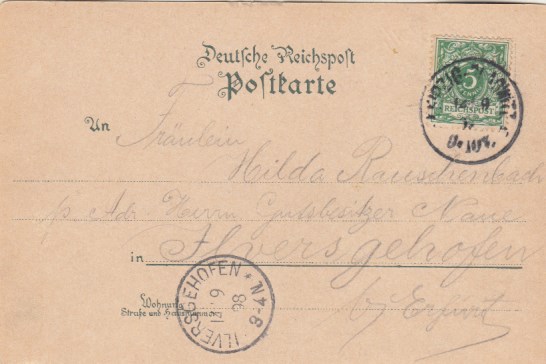 Deutsche Reichspost
Postkarte
5
REICHSPOST
LEIPZIG
An Fräulein
Hilda Rauschenbach
p. Adr. Herrn Gutsbesitzer Naue
in Ilversgehofen
b/ Erfurt
Wohnung
Straße und Hausnummer
ILVERSGEHOFEN
* N 4-8
13 9
98